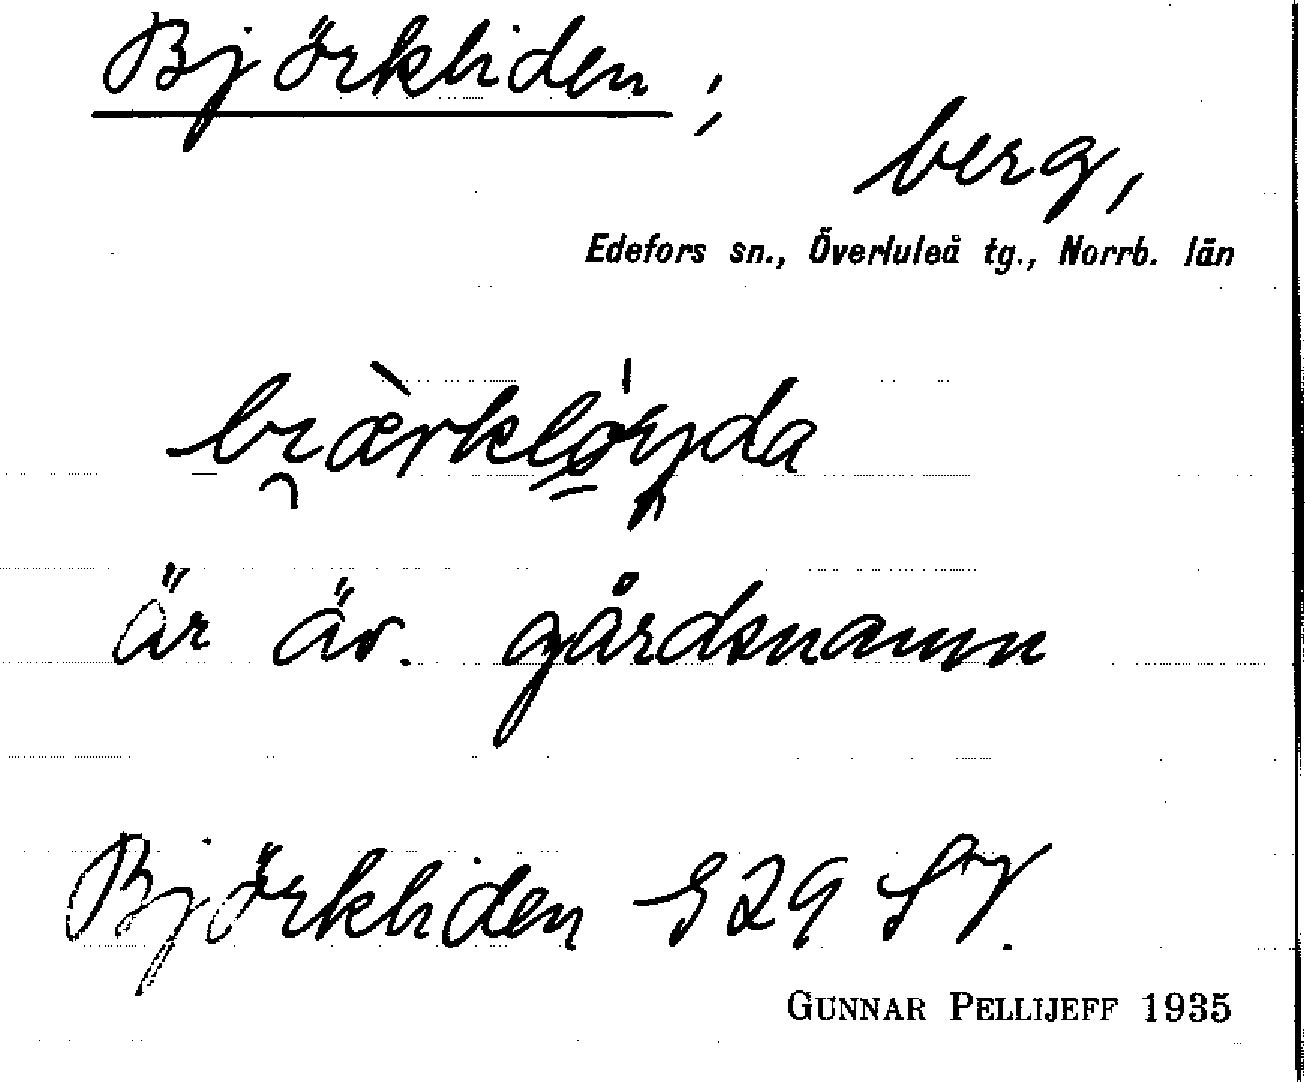 Björkliden;
berg,
Edefors sn., Överluleå tg., Norrb. län
är äv. gårdsnamn
Björkliden 929
GUNNAR PELLIJEFF 1935